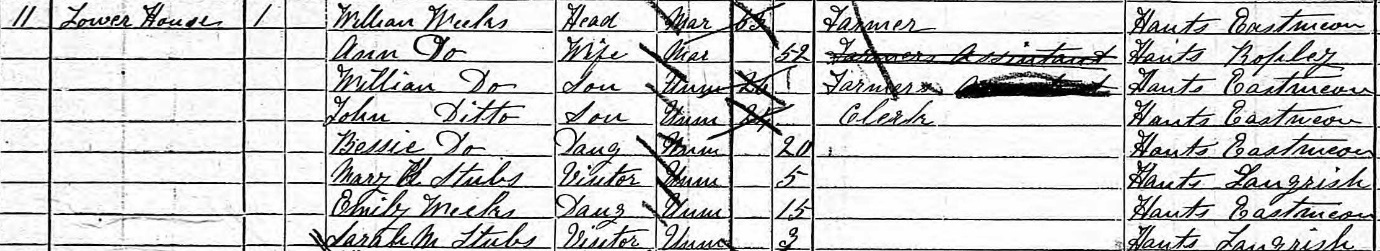 11 Lower House 1 William Meeks Head Mar 63 Farmer Hants Eastmeon
Ann Do Wife Mar 52 Farmers Assistant Hants Ropley
William Do Son Unm 26 Farmers Hants Eastmeon
John Ditto Son Unm Clerk Hants Eastmeon
Bessie Do Daug Unm 20 Hants Eastmeon
Mary H Stubs Visitor Unm 5 Hants Langrish
Emily Meeks Daug Unm 15 Hants Eastmeon
Sarah M Stubs Visitor Unm 3 Hants Langrish